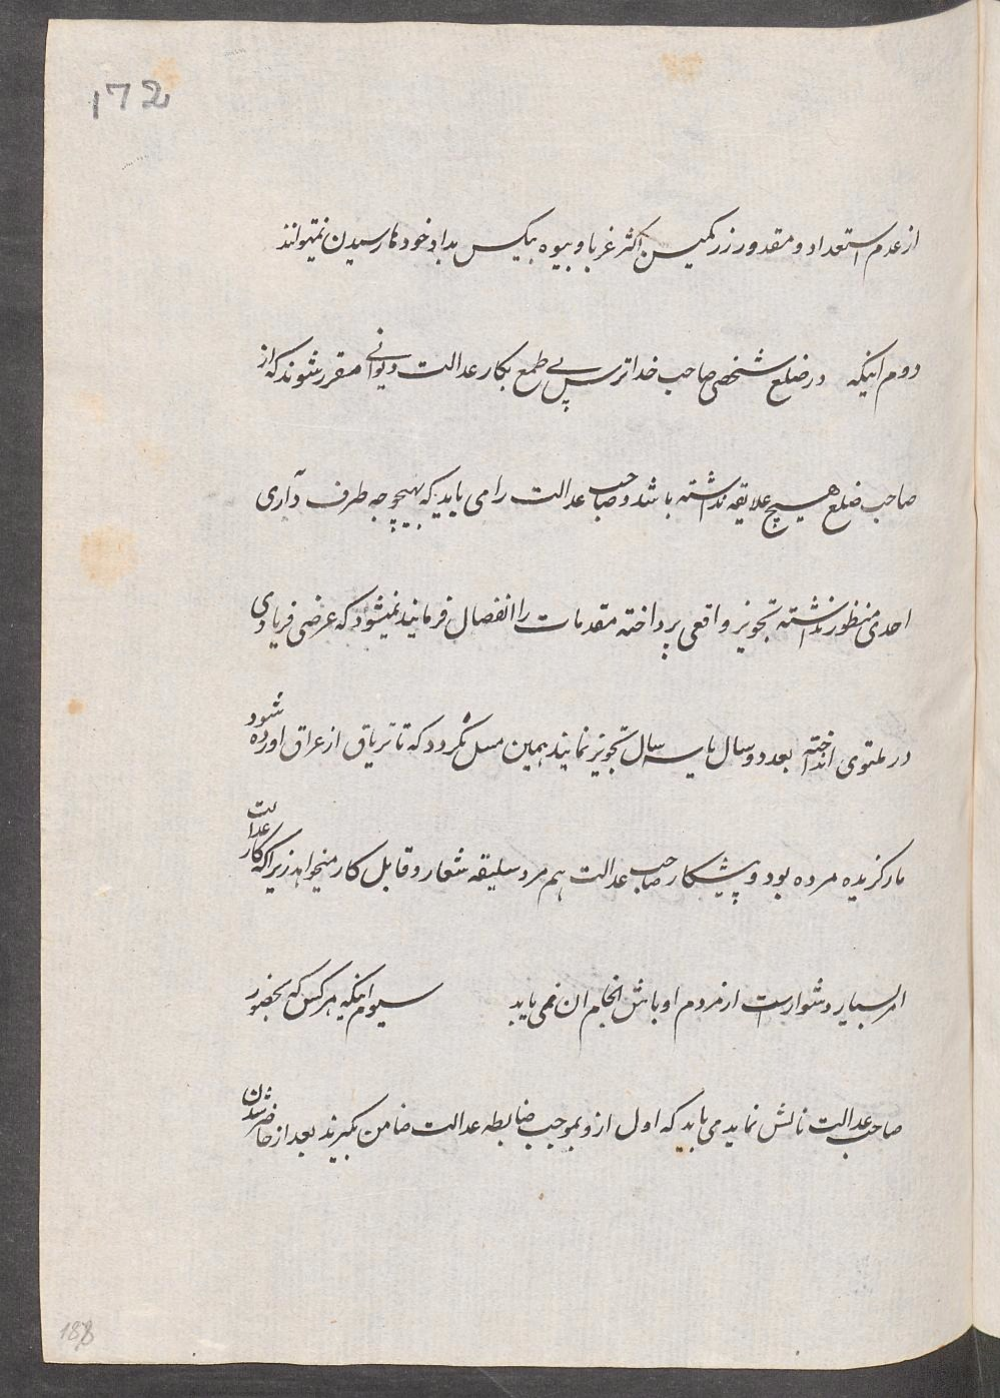 172
از عدم استعداد و مقدور زر کمیس اکثر غربا و بیوه بیکس بداد خودها رسیدن نمیتوانند
دوم اینکه در ضلع شخصی صاحب خدا ترس بی طمع بکار عدالت دیوانی مقرر شوند که از
صاحب ضلع هیچ علایقه نداشته باشد و صاحب عدالت را می باید که بهیچوجه طرف داری
احدی منظور نداشته تجویز واقعی پرداخته مقدمات را انفصال فرمایند نمیشود که عرضی فریادی
در ملتوی انداخته بعد دو سال یا سه سال تجویز نمایند همین مسل نگردد که تا تریاق از عراق آورده شود
مار گزیده مرده بود و پیشکار صاحب عدالت هم مرد سلیقه شعار و قابل کار میخواهد زیرا که کار عدالت
امر بسیار دشوار است از مردم اوباش انجام آن نمی یابد سیوم اینکه هر کس که بحضور
صاحب عدالت نالش نماید می باید که اول ازو بموجب ضابطه عدالت ضامن بگیرند بعد از حاضر شدن
188